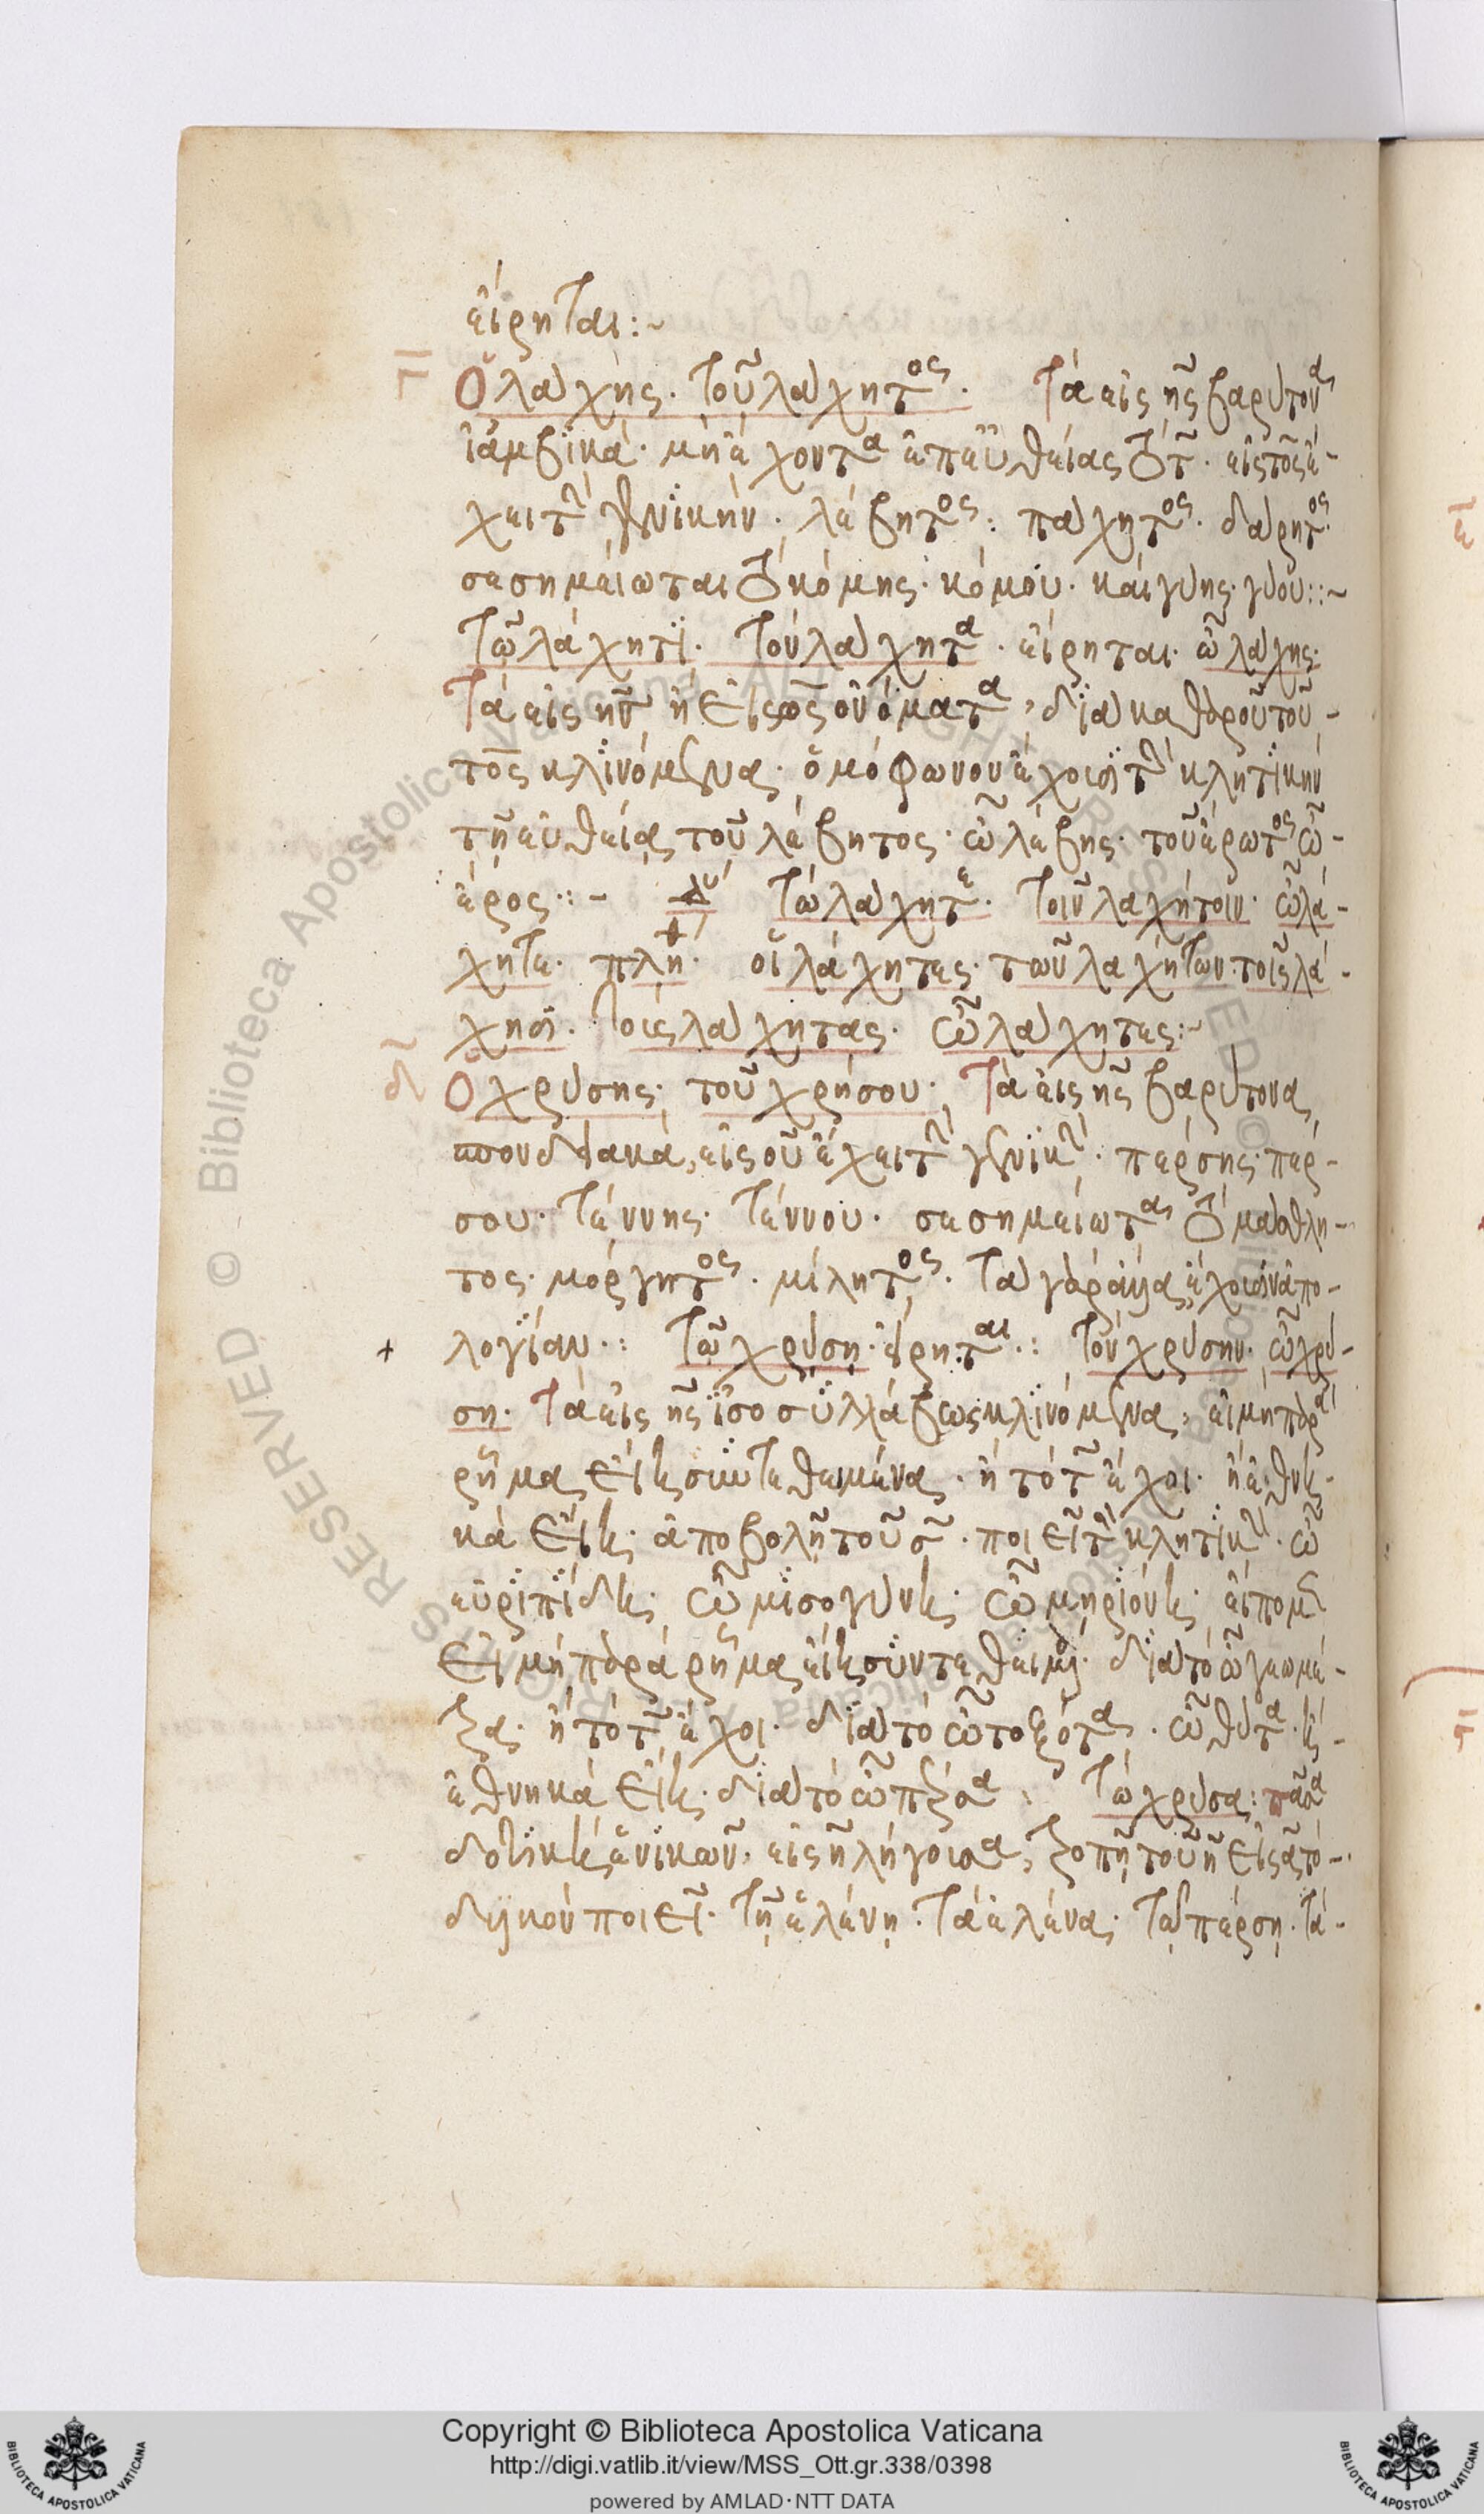 εἴρηται:~
γ Ὁ λάχης. τοῦ λάχητος. Τὰ εἰς ης βαρύτονα
ἰαμβικά. μὴ ἔχοντα ἐπ' εὐθείας τὸ τ. εἰς τος ἔ-
χει τὴν γενικήν. λέβητος: πάχητος. δάρητος.
σεσημείωται τὸ κόμης. κόμου. καὶ γύης. γύου::~
Τῶ λάχητι. Τὸν λάχητα. εἴρηται. ὦ λάχης.
Τὰ εἰς ην ἢ εἰς ως ὀνόματα, διὰ καθαροῦ τοῦ-
τος κλινόμενα. ὁμόφωνον ἔχουσι τὴν κλητικὴν
τῆ εὐθεία, τοῦ λέβητος. ὦ λέβης. τοῦ ἔρωτος ὦ-
έρος::- Δυ Τὼ λάχητε. Τοῖν λαχήτοιν. ὦ λά-
χητε. πλη. οἱ λάχητες. τῶν λαχήτων. τοῖς λά-
χησι. Τοὺς λάχητας. ὦ λάχητες:~
δ Ὁ χρύσης. τοῦ χρύσου. Τὰ εἰς ης βαρύτονα
σπονδειακά, εἰς ου ἔχει τὴν γενικήν. πέρσης. πέρ-
σου. Τέννης. Τέννου. σεσημείωται τὸ μάσθλη-
τος. μόργητος. μίλητος. Τὰ γὰρ ἄλλα, ἔχουσιν ἀπο-
λογίαν.: Τῶ χρύση. εἴρηται.: Τὸν χρύσην. ὦ χρύ-
ση. Τὰ εἰς ης ἰσοσυλλάβως κλινόμενα, εἰ μὴ παρὰ
ῥῆμα εἴη συντεθειμένα. ἢ τὸ τ ἔχοι. ἢ ἐθνι-
κὰ εἴη. ἀποβολῆ τοῦ σ. ποιεῖ τὴν κλητικήν. ὦ
εὐριπίδη. ὦ μισογύνη. ὦ μηριόνη. εἴπομεν
Εἰ μὴ παρὰ ῥῆμα εἴη συντεθειμένα. διὰ τὸ ὦ γεωμέ-
τρα. ἢ τὸ τ ἔχοι. διὰ τὸ ὦ τοξότα. ὦ θύτα. ἢ-
ἐθνικὰ εἴη. διὰ τὸ ὦ πέρσα. Τὼ χρύσα: πᾶσα
δοτικὴ ἑνικῶν. εἰς η λήγουσα, τροπῆ τοῦ η εἰς α τὸ-
δυϊκὸν ποιεῖ. Τῆ ἑλένη. Τὰ ἑλένα. Τῶ πέρση. Τὼ-
Copyright © Biblioteca Apostolica Vaticana
http://digi.vatlib.it/view/MSS_Ott.gr.338/0398
powered by AMLAD·NTT DATA